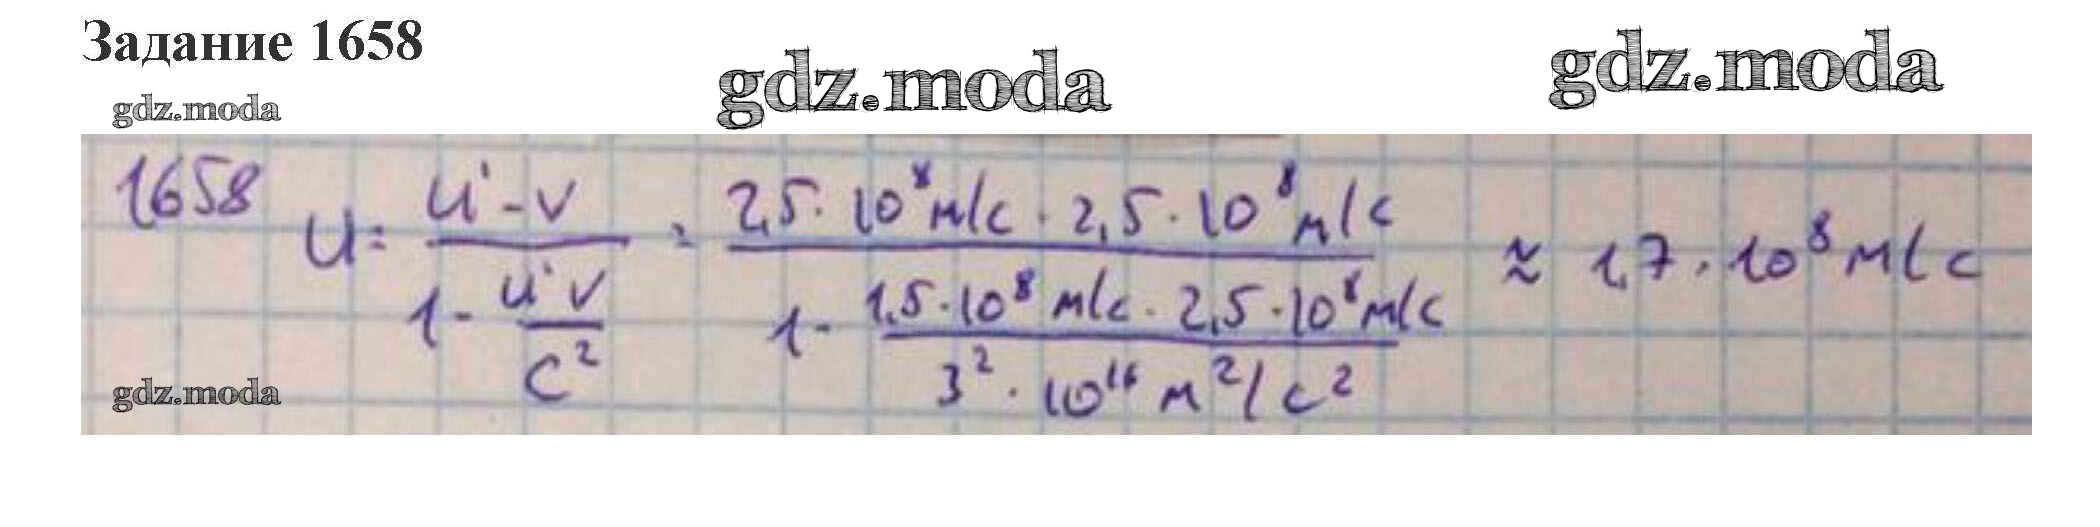 Задание 1658
gdz.moda
gdz.moda
gdz.moda
1658 u = (u' - v) / (1 - u'v / c²) = (2,5 · 10⁸ м/с · 2,5 · 10⁸ м/с) / (1 - (1,5 · 10⁸ м/с · 2,5 · 10⁸ м/с) / (3² · 10¹⁶ м²/с²)) ≈ 1,7 · 10⁸ м/с
gdz.moda